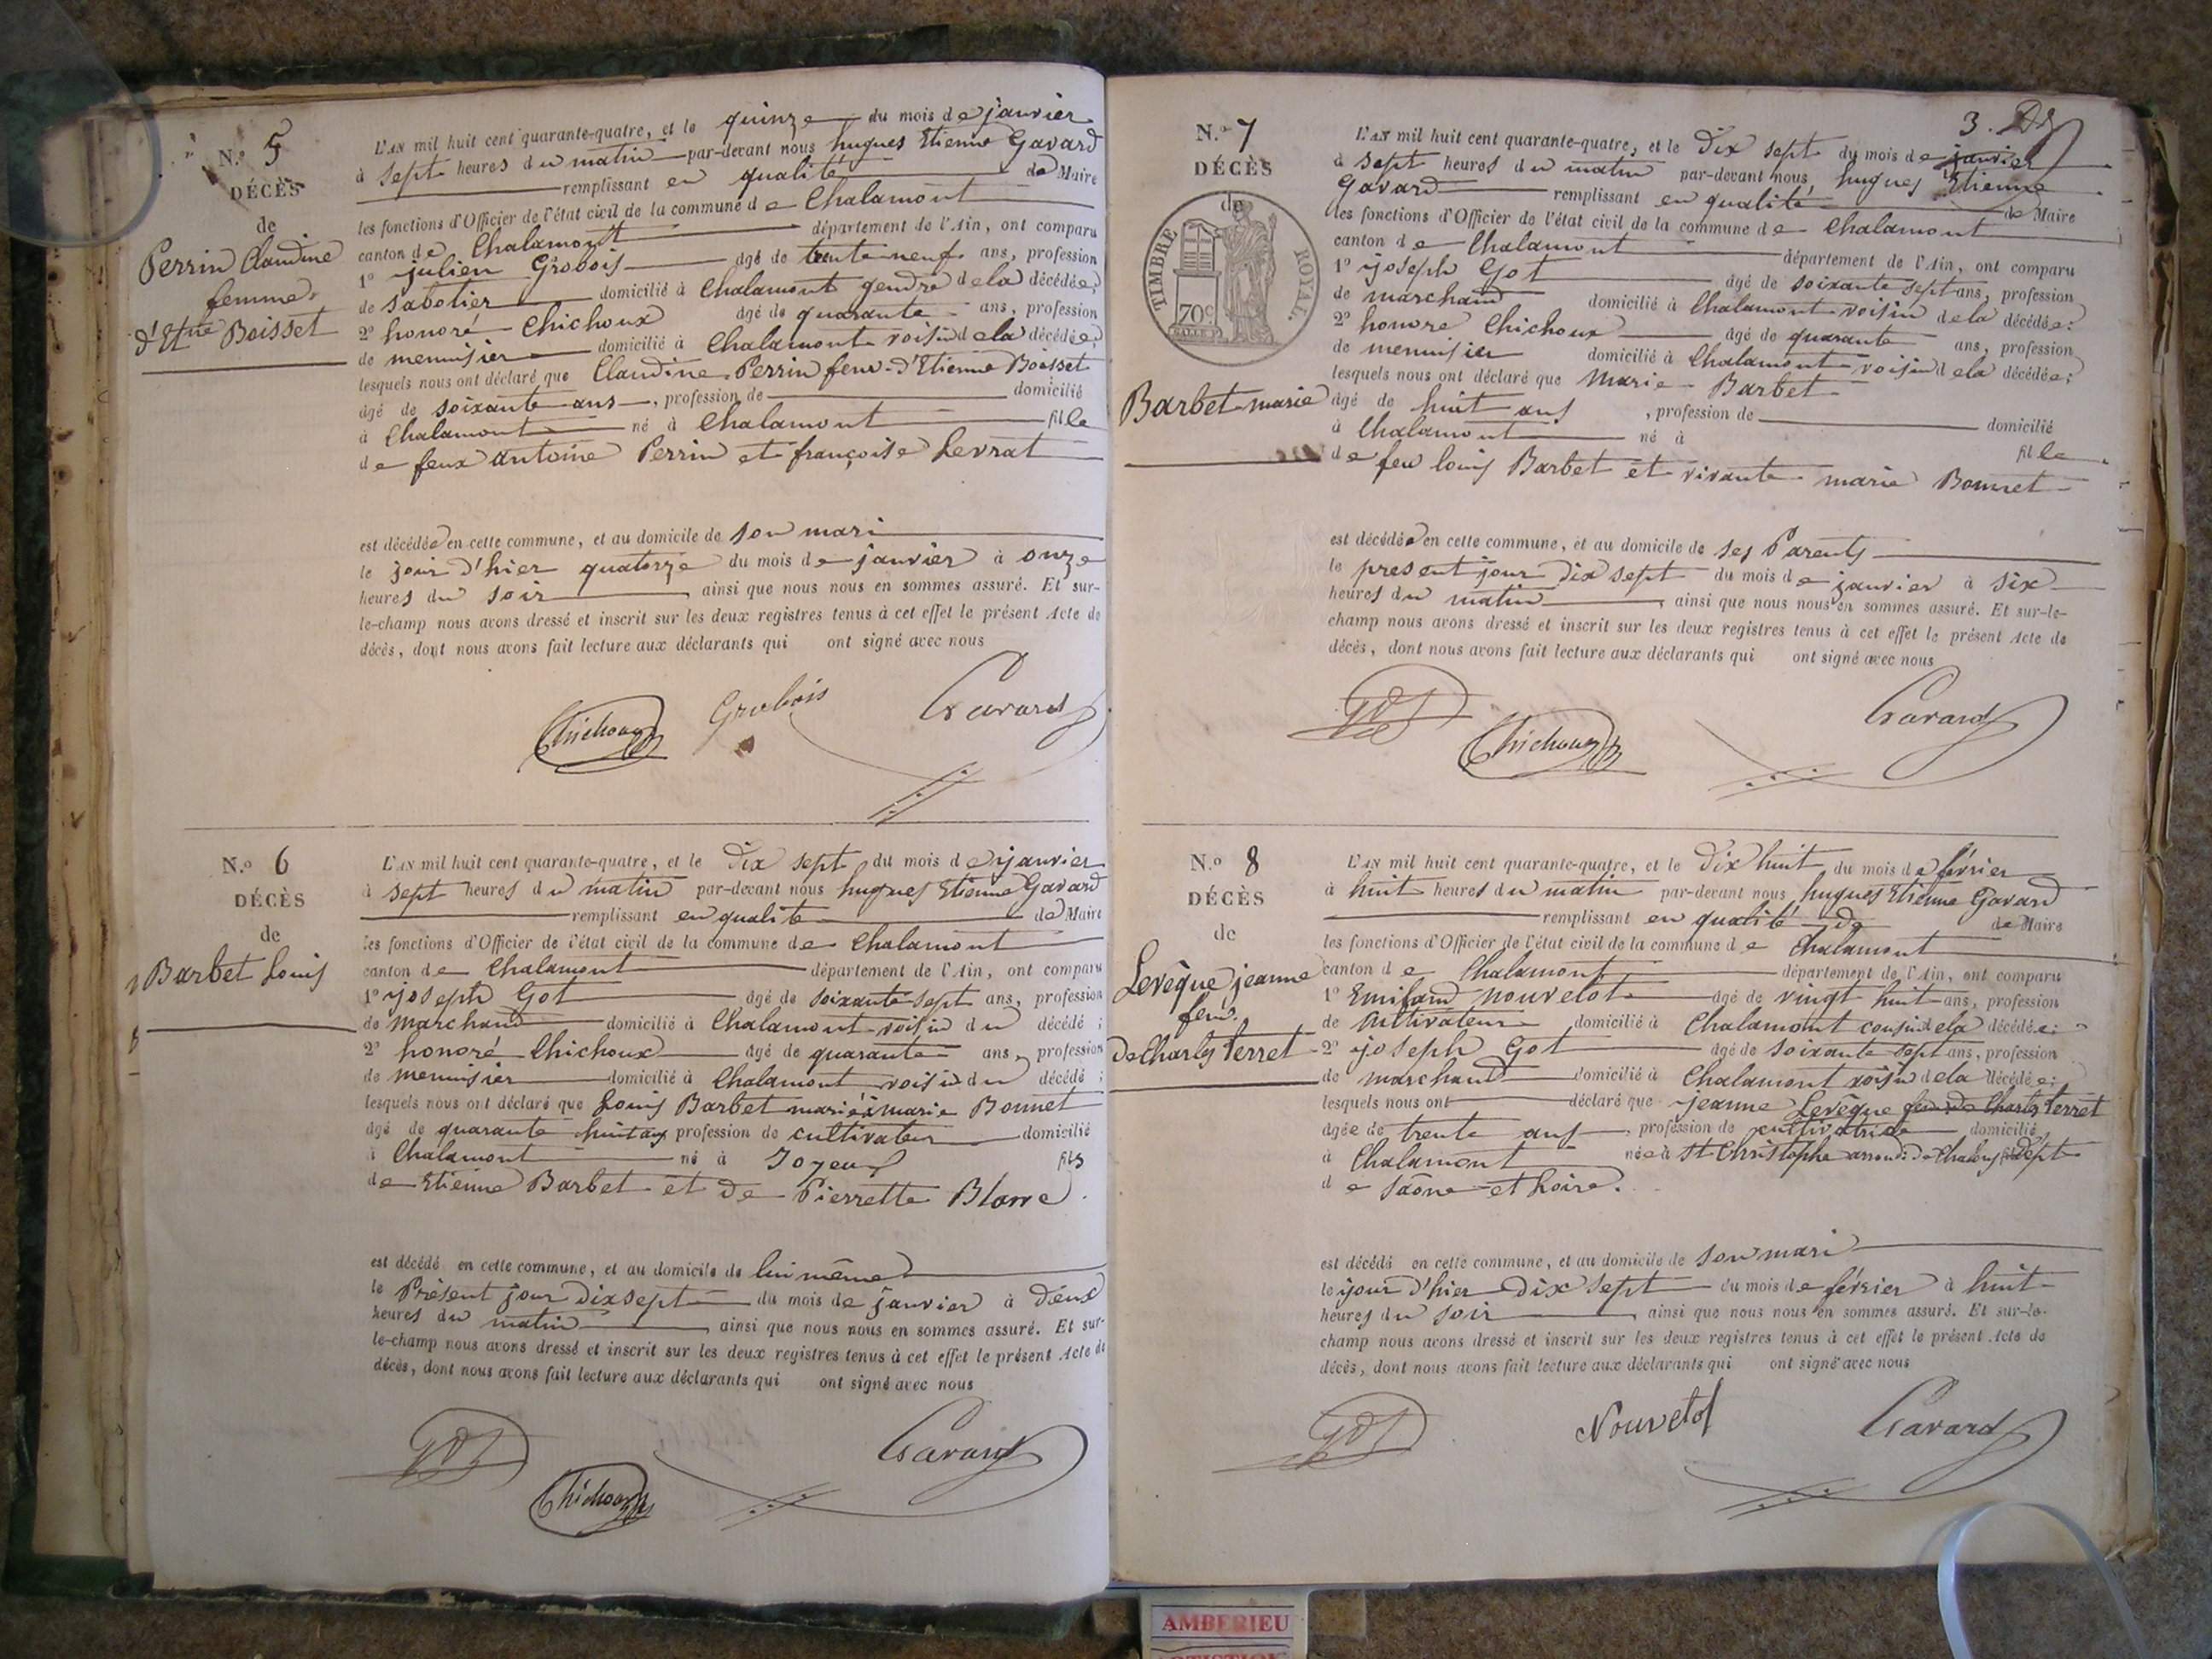 N.º 5
DÉCÈS
de
Perrin Claudine
femme
d'Etne Boisset
L'AN mil huit cent quarante-quatre, et le quinze du mois de janvier
à sept heures du matin par-devant nous hugues Etienne Gavard
remplissant en qualité de Maire
les fonctions d'Officier de l'état civil de la commune de Chalamont
canton de Chalamont département de l'Ain, ont comparu
1º julien Grobois âgé de trente neuf ans, profession
de sabotier domicilié à Chalamont gendre de la décédée;
2º honoré Chichoux âgé de quarante ans, profession
de menuisier domicilié à Chalamont voisin de la décédée;
lesquels nous ont déclaré que Claudine Perrin fem. d'Etienne Boisset
âgé de soixante ans, profession de domicilié
à Chalamont né à Chalamont fille
de feux antoine Perrin et françoise Levrat
est décédée en cette commune, et au domicile de son mari
le jour d'hier quatorze du mois de janvier à onze
heures du soir ainsi que nous nous en sommes assuré. Et sur-
le-champ nous avons dressé et inscrit sur les deux registres tenus à cet effet le présent Acte de
décès, dont nous avons fait lecture aux déclarants qui ont signé avec nous
Chichoux Grobois Gavard
N.º 6
DÉCÈS
de
Barbet Louis
L'AN mil huit cent quarante-quatre, et le dix sept du mois de janvier
à sept heures du matin par-devant nous hugues Etienne Gavard
remplissant en qualité de Maire
les fonctions d'Officier de l'état civil de la commune de Chalamont
canton de Chalamont département de l'Ain, ont comparu
1º joseph Got âgé de soixante sept ans, profession
de marchand domicilié à Chalamont voisin du décédé;
2º honoré Chichoux âgé de quarante ans, profession
de menuisier domicilié à Chalamont voisin du décédé;
lesquels nous ont déclaré que Louis Barbet marié à marie Bonnet
âgé de quarante huit ans profession de cultivateur domicilié
à Chalamont né à Joyeux fils
de Etienne Barbet et de Pierrette Blanc
est décédé en cette commune, et au domicile de lui même
le Présent jour dix sept du mois de janvier à deux
heures du matin ainsi que nous nous en sommes assuré. Et sur-
le-champ nous avons dressé et inscrit sur les deux registres tenus à cet effet le présent Acte de
décès, dont nous avons fait lecture aux déclarants qui ont signé avec nous
Got Chichoux Gavard
3.
N.º 7
DÉCÈS
de
TIMBRE ROYAL.
70c
Barbet marie
L'AN mil huit cent quarante-quatre, et le dix sept du mois de janvier
à sept heures du matin par-devant nous hugues Etienne
Gavard remplissant en qualité de Maire
les fonctions d'Officier de l'état civil de la commune de Chalamont
canton de Chalamont département de l'Ain, ont comparu
1º joseph Got âgé de soixante sept ans, profession
de marchand domicilié à Chalamont voisin de la décédée;
2º honoré Chichoux âgé de quarante ans, profession
de menuisier domicilié à Chalamont voisin de la décédée;
lesquels nous ont déclaré que Marie Barbet
âgé de huit ans, profession de domicilié
à Chalamont né à fille
de feu louis Barbet et vivante marie Bonnet
est décédée en cette commune, et au domicile de ses Parents
le present jour dix sept du mois de janvier à six
heures du matin ainsi que nous nous en sommes assuré. Et sur-le-
champ nous avons dressé et inscrit sur les deux registres tenus à cet effet le présent Acte de
décès, dont nous avons fait lecture aux déclarants qui ont signé avec nous
Got Chichoux Gavard
N.º 8
DÉCÈS
de
Levêque jeanne
fem.
de Charles Terret
L'AN mil huit cent quarante-quatre, et le dix huit du mois de février
à huit heures du matin par-devant nous hugues Etienne Gavard
remplissant en qualité de de Maire
les fonctions d'Officier de l'état civil de la commune de Chalamont
canton de Chalamont département de l'Ain, ont comparu
1º Emiland nouvelot âgé de vingt huit ans, profession
de cultivateur domicilié à Chalamont cousin de la décédée;
2º joseph Got âgé de soixante sept ans, profession
de marchand domicilié à Chalamont voisin de la décédée;
lesquels nous ont déclaré que jeanne Levêque fem. de Charles Terret
âgée de trente ans, profession de cultivatrice domicilié
à Chalamont née à St Christophe arrond. de dépt
de Saône et Loire.
est décédé en cette commune, et au domicile de son mari
le jour d'hier dix sept du mois de février à huit
heures du soir ainsi que nous nous en sommes assuré. Et sur-le-
champ nous avons dressé et inscrit sur les deux registres tenus à cet effet le présent Acte de
décès, dont nous avons fait lecture aux déclarants qui ont signé avec nous
Got Nouvelot Gavard
AMBERIEU